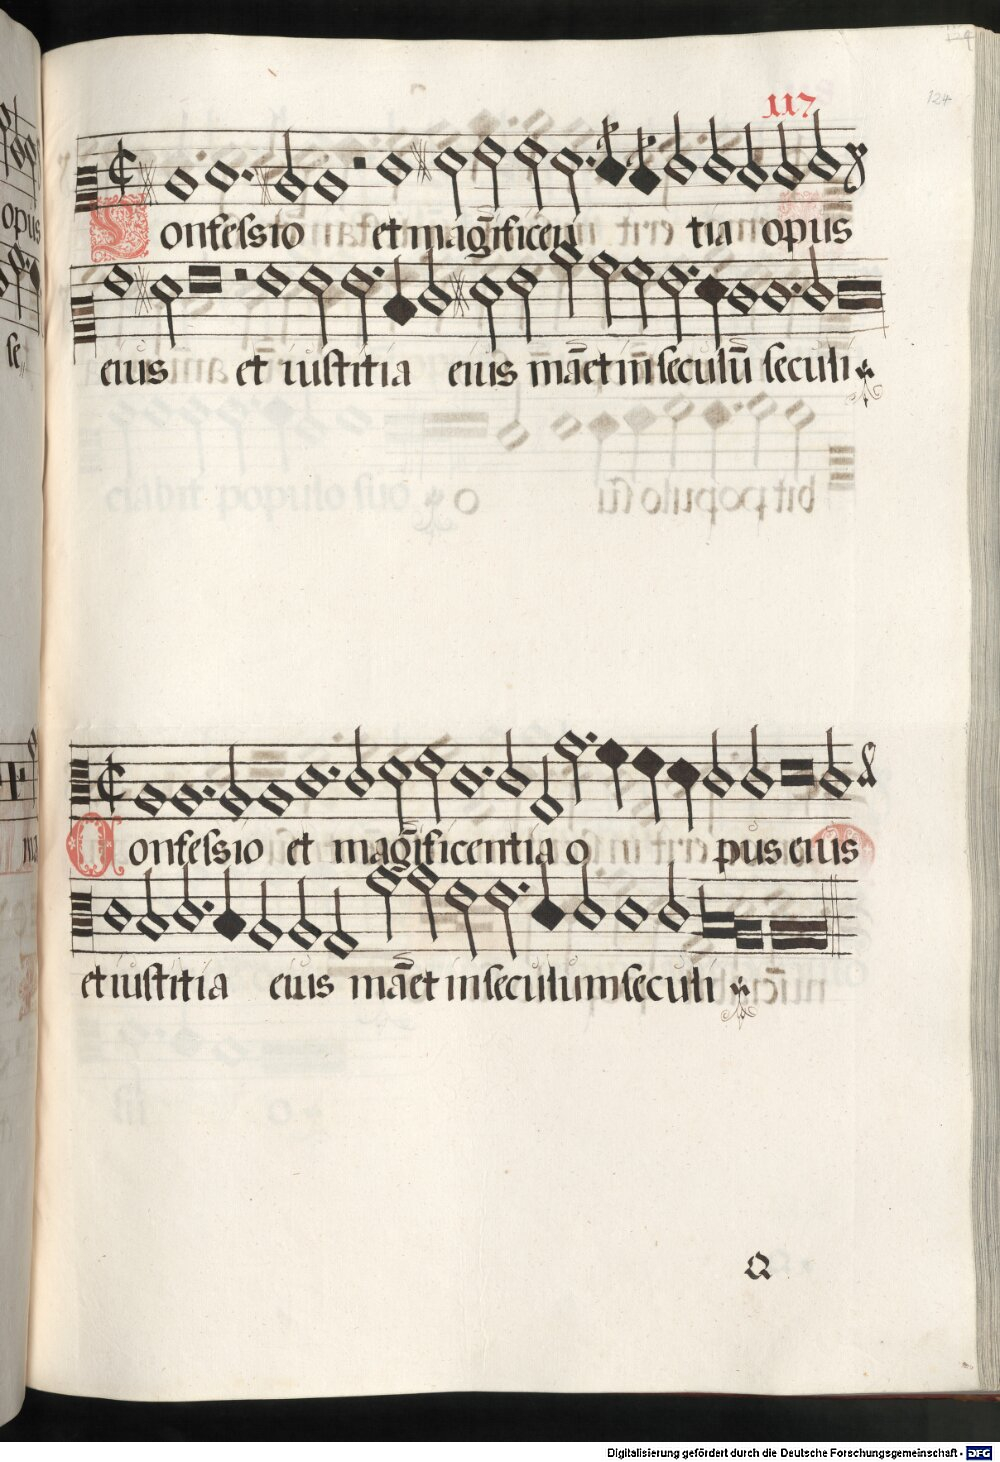 117
124
Confessio et magn̄ificen tia opus
eius et iustitia eius māet in seculū seculi
Confessio et magn̄ificentia o pus eius
et iustitia eius māet in seculum seculi
Digitalisierung gefördert durch die Deutsche Forschungsgemeinschaft - DFG